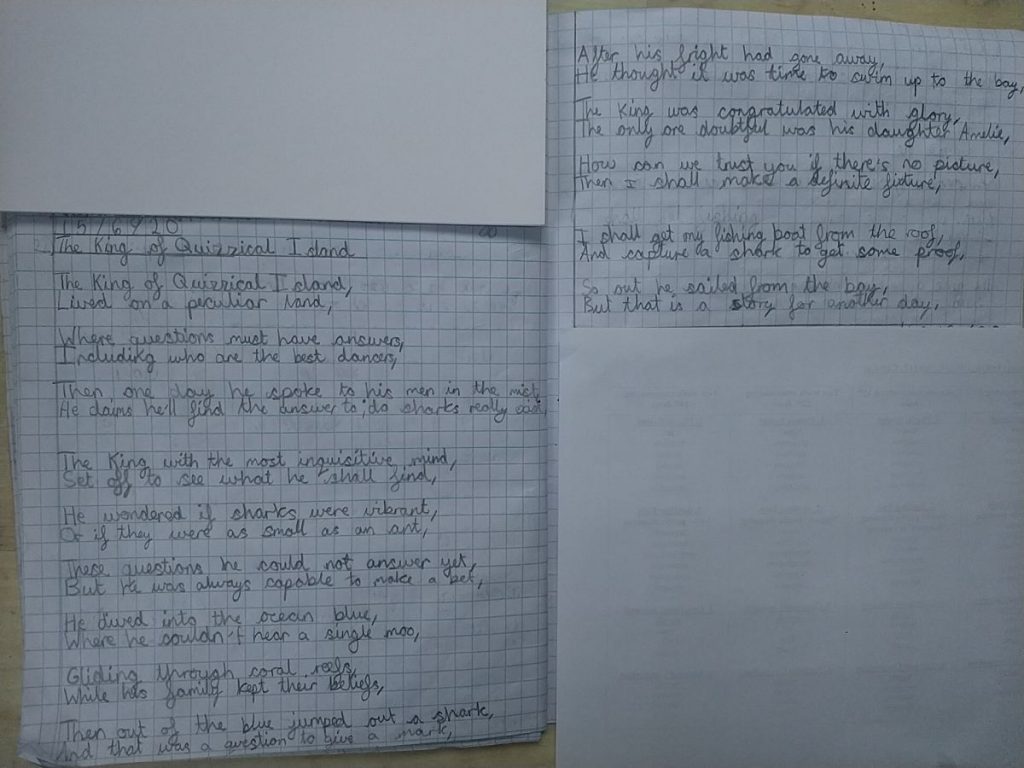 15/6/20
The King of Quizzical Island
The King of Quizzical Island,
Lived on a peculiar land,
Where questions must have answers,
Including who are the best dancers,
Then one day he spoke to his men in the mist
He claims he'll find the answer to 'do sharks really exist
The King with the most inquisitive mind,
Set off to see what he shall find,
He wondered if sharks were vibrant,
Or if they were as small as an ant,
These questions he could not answer yet,
But he was always capable to make a bet,
He dived into the ocean blue,
Where he couldn't hear a single moo,
Gliding through coral reefs,
While his family kept their beliefs,
Then out of the blue jumped out a shark,
And that was a question to give a mark,
After his fright had gone away,
He thought it was time to swim up to the bay,
The King was congratulated with glory,
The only one doubtful was his daughter Amelie,
How can we trust you if there's no picture,
Then I shall make a definite fixture,
I shall get my fishing boat from the roof,
And capture a shark to get some proof,
So out he sailed from the bay,
But that is a story for another day,